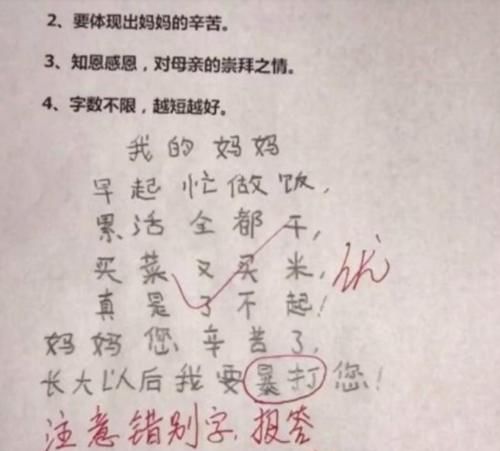 2、要体现出妈妈的辛苦。
3、知恩感恩，对母亲的崇拜之情。
4、字数不限，越短越好。
我的妈妈
早起忙做饭，
累活全都干，
买菜又买米，优
真是了不起！
妈妈您辛苦了，
长大以后我要暴打您！
注意错别字，报答